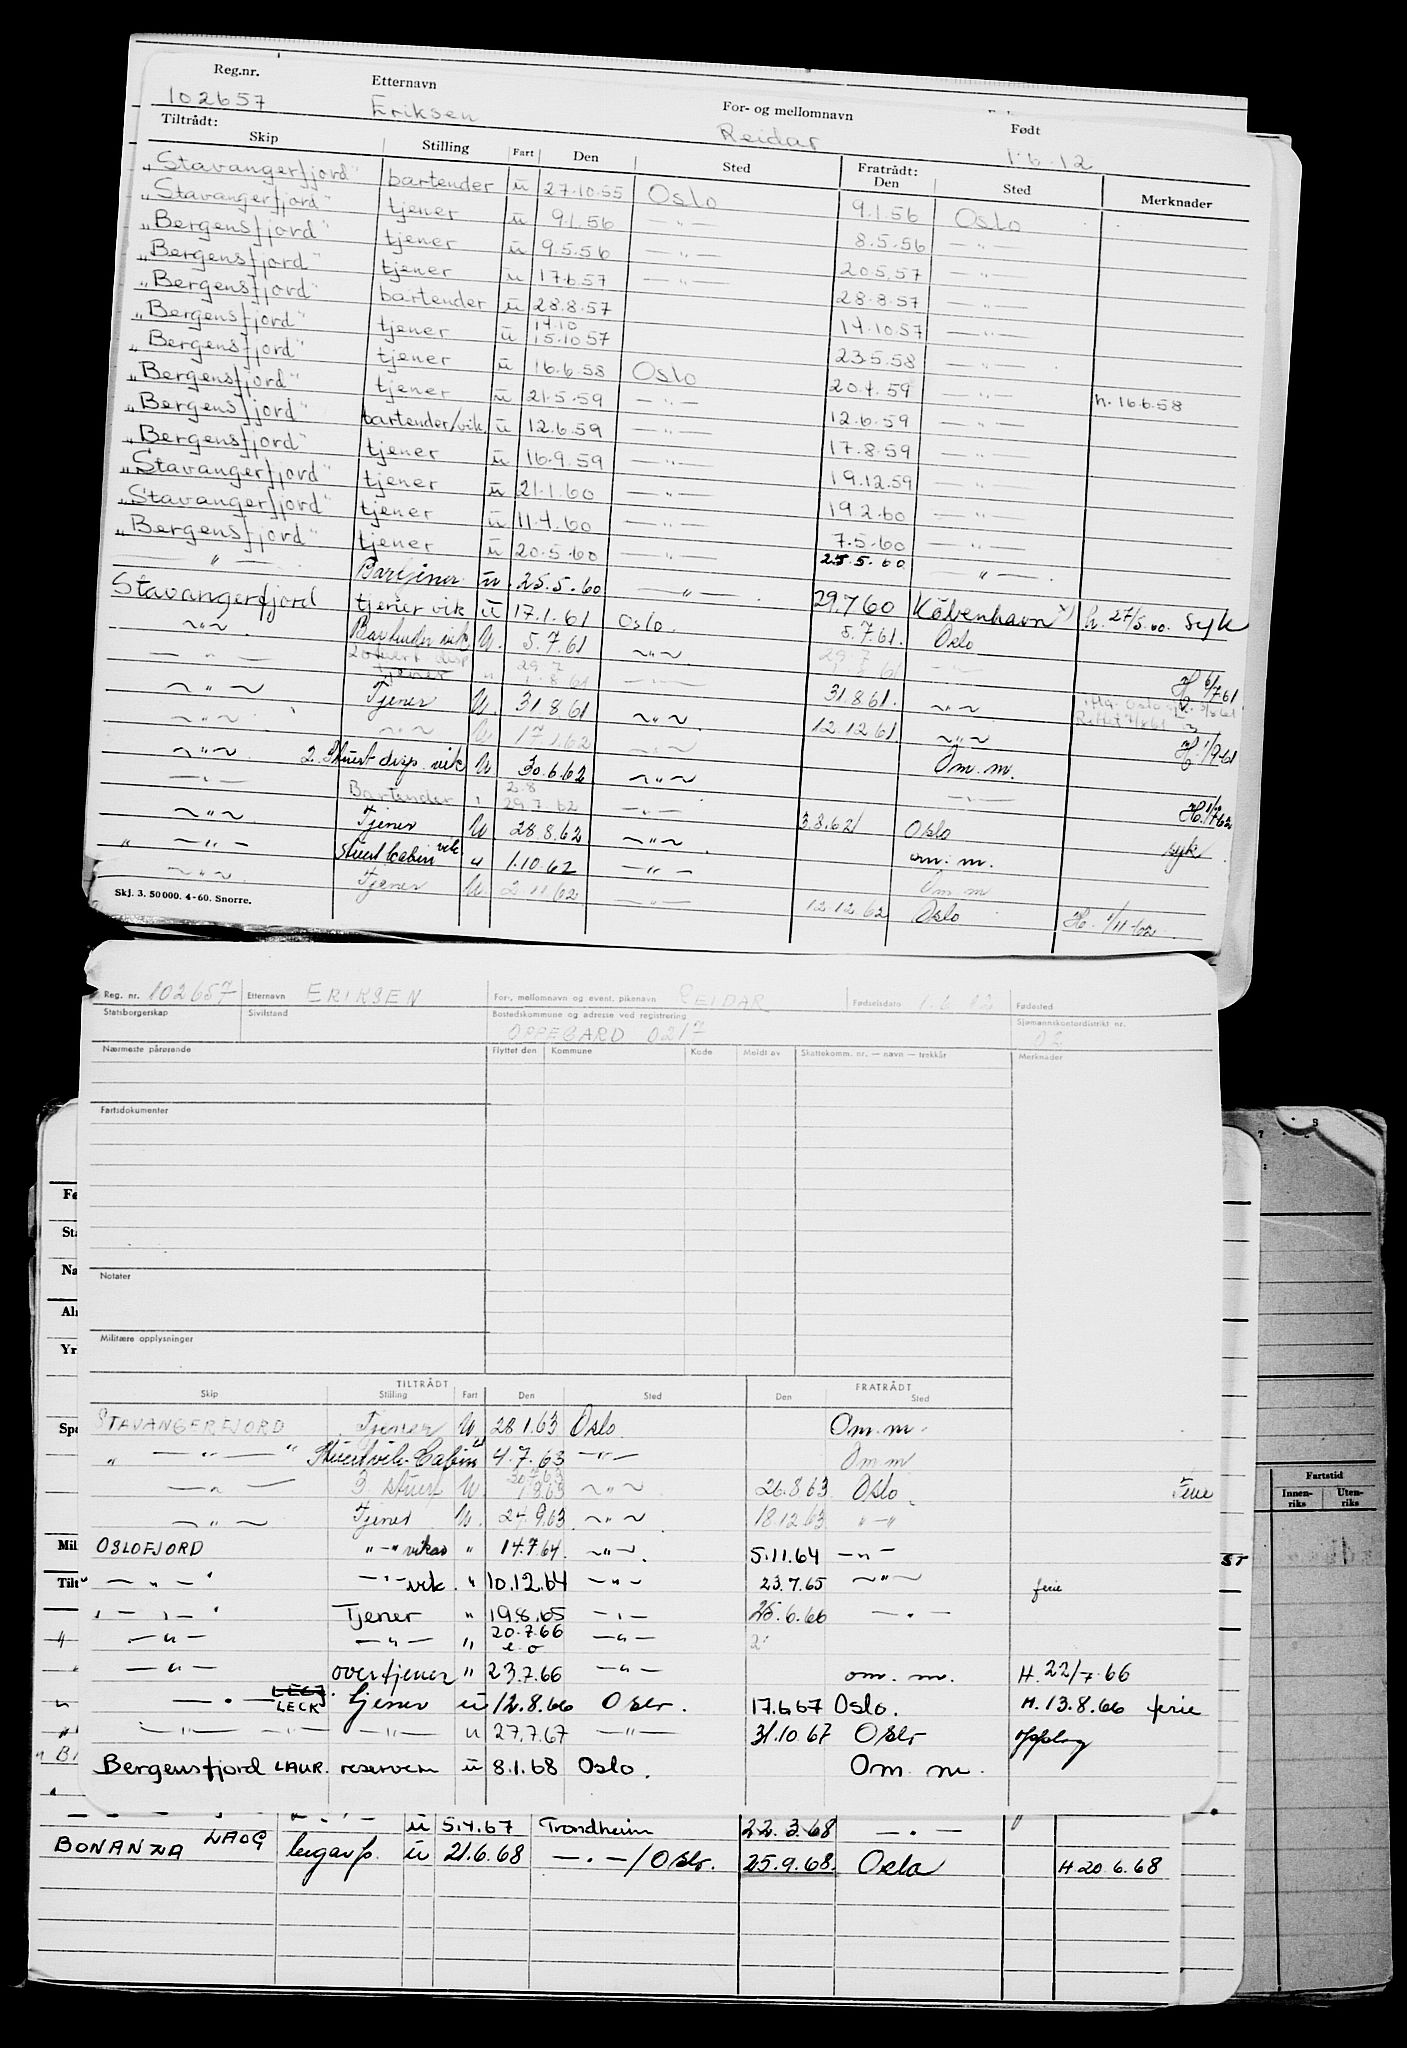 Reg.nr. Etternavn For- og mellomnavn Født
102657 Eriksen Reidar 1.6.12
Tiltrådt: Fratrådt:
Skip Stilling Fart Den Sted Den Sted Merknader
„Stavangerfjord" bartender u 27.10.55 Oslo 9.1.56 Oslo
„Stavangerfjord" tjener u 9.1.56 — „ — 8.5.56 — „ —
„Bergensfjord" tjener u 9.5.56 — „ — 20.5.57 — „ —
„Bergensfjord" tjener u 17.6.57 — „ — 28.8.57 — „ —
„Bergensfjord" bartender u 28.8.57 14.10.57 — „ —
„Bergensfjord" tjener u 14.10 15.10.57 23.5.58 — „ —
„Bergensfjord" tjener u 16.6.58 Oslo 20.4.59 — „ — h. 16.6.58
„Bergensfjord" tjener u 21.5.59 — „ — 12.6.59 — „ —
„Bergensfjord" bartender/vik. u 12.6.59 — „ — 17.8.59 — „ —
„Bergensfjord" tjener u 16.9.59 — „ — 19.12.59 — „ —
„Stavangerfjord" tjener u 21.1.60 — „ — 19.2.60 — „ —
„Stavangerfjord" tjener u 11.4.60 — „ — 7.5.60 — „ —
„Bergensfjord" tjener u 20.5.60 — „ — 25.5.60 — „ —
— „ — u. 25.5.60 — „ — 29.7.60 København h. 27/5.60. syk
Stavangerfjord tjener vik u 17.1.61 Oslo. 5.7.61. Oslo
— „ — Bartender vik U. 5.7.61 — „ — 29.7 — „ — H 6/7.61
— „ — tjener 29.7 1.8.61 — „ — 31.8.61. — „ —
— „ — Tjener U. 31.8.61 — „ — 12.12.61. — „ — H. 1/9-61
— „ — — „ — U 17.1.62 — „ — Om.m.
— „ — 2. Stuert disp. vik U 30.6.62 — „ — — „ — H. 1/7.62
— „ — Bartender „ 2.8 29.7.62 — „ — 3.8.62 Oslo syk
— „ — Tjener U 28.8.62 — „ — om. m.
— „ — Stuert Cabin vik u 1.10.62 — „ — Om. m
— „ — Tjener U. 2.11.62 — „ — 12.12.62 Oslo H. 1/11-62
Skj. 3. 50000. 4-60. Snorre.
Reg. nr. 102657 Etternavn ERIKSEN For-, mellomnavn og event. pikenavn REIDAR Fødselsdato 1.6.12 Fødested
Statsborgerskap Sivilstand Bostedskommune og adresse ved registrering Sjømannskontordistrikt nr.
OPPEGÅRD 0217 02
Nærmeste pårørende Flyttet den Kommune Kode Meldt av Skattekomm. nr. — navn — trekkår Merknader
Fartsdokumenter
Notater
Militære opplysninger
TILTRÅDT FRATRÅDT
Skip Stilling Fart Den Sted Den Sted
STAVANGERFJORD Tjener U 28.1.63 Oslo. Om. m.
— „ — Stuert vik Cabin u 4.7.63 — „ — Om m
— „ — 3 stuert U 30.7.63 1.8.63 — „ — 26.8.63 Oslo. Ferie
— „ — Tjener U. 24.9.63 — „ — 18.12.63 „ — „
OSLOFJORD „ — „ vikar „ 14.7.64. — „ —. 5.11.64 — „ —
— „ — — „ — vik. „ 10.12.64 — „ — 23.7.65 — „ — ferie
— „ — Tjener „ 19.8.65 — „ — 25.6.66 — „ —
— „ — — „ — „ 20.7.66 e.o — „ —
— „ — overtjener „ 23.7.66 — „ — om. m. H. 22/7.66
— „ — LECK tjener u 12.8.66 Oslo. 17.6.67 Oslo. H. 13.8.66 ferie
— „ — — „ — — „ — u 27.7.67 — „ — 31.10.67 Oslo opplag
Bergensfjord LAUR. reserven u 8.1.68 Oslo. Om m.
— „ — u 5.4.67 Trondheim 22.3.68 — „ —
BONANZA LAOG u 21.6.68 — „ — / Oslo. 25.9.68. Oslo H 20.6.68
Fø
Sta
Na
Al
Yr
Spe
Mil
Tilt
Fartstid
Innen-riks Uten-riks
ST